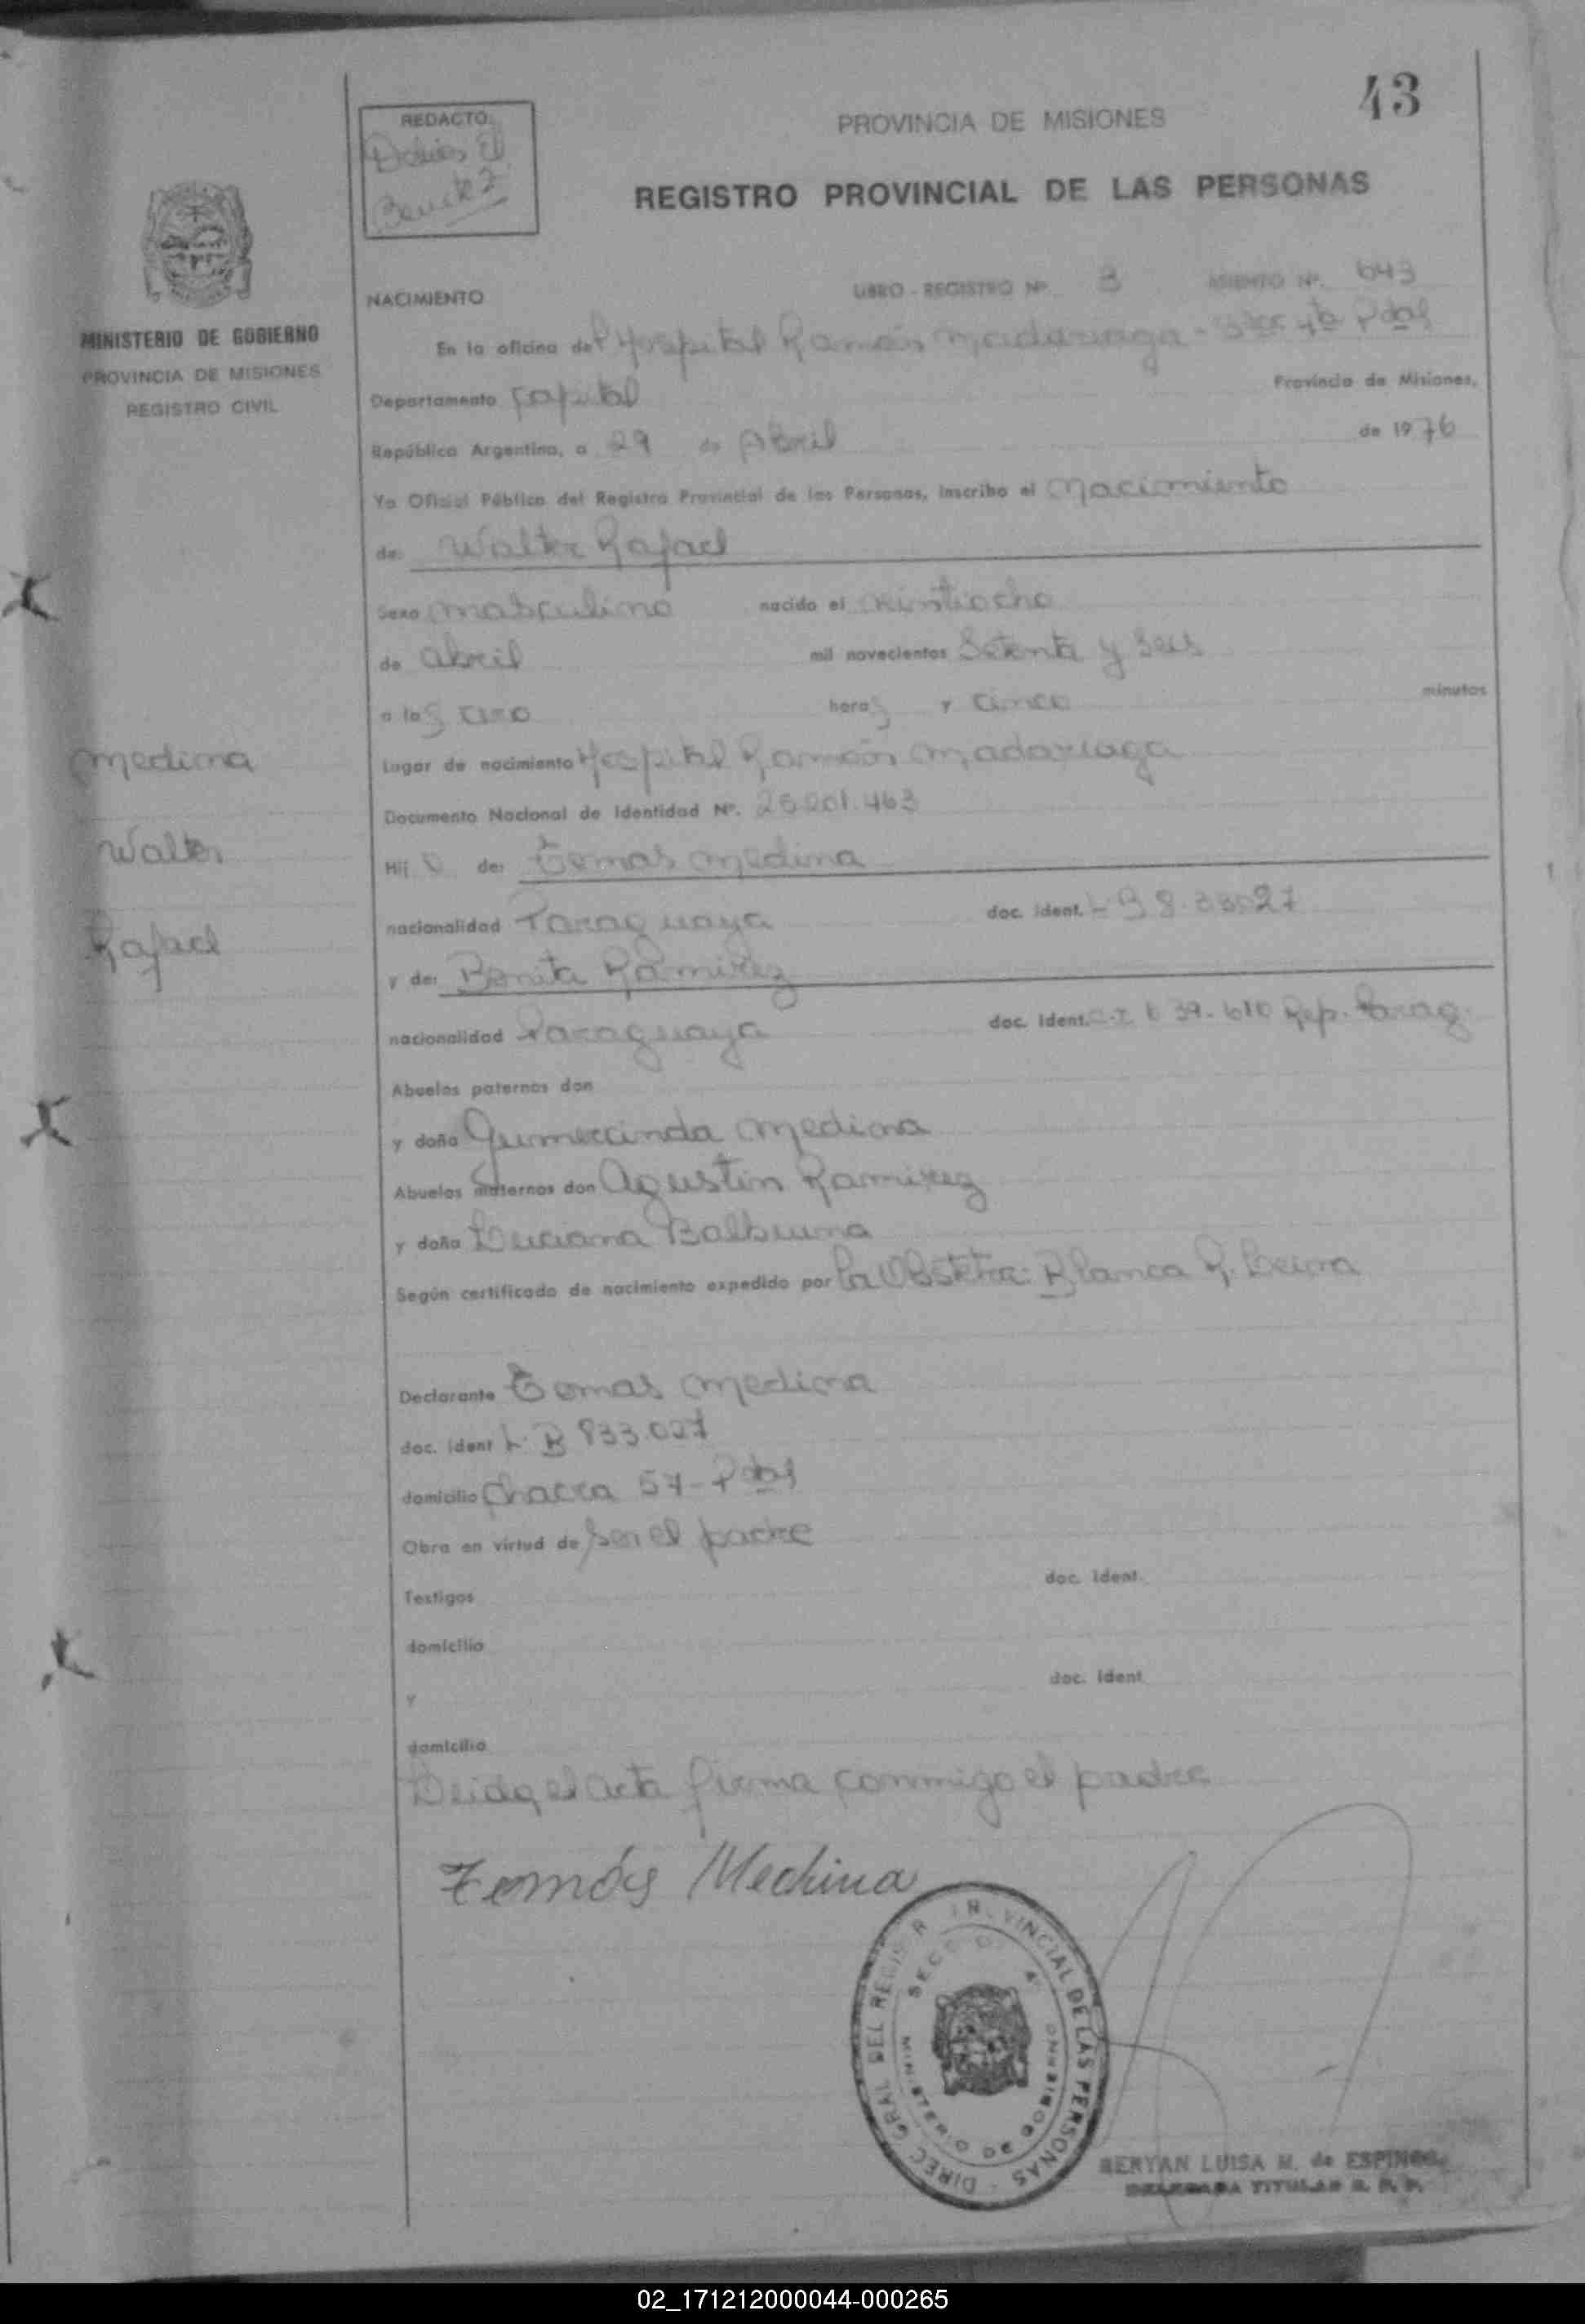 43
REDACTO:
Benitez
PROVINCIA DE MISIONES
REGISTRO PROVINCIAL DE LAS PERSONAS
MINISTERIO DE GOBIERNO
PROVINCIA DE MISIONES
REGISTRO CIVIL
NACIMIENTO LIBRO - REGISTRO Nº. 3 ASIENTO Nº. 643
En la oficina del Hospital Ramón Madariaga - 4ta Pdas
Departamento Capital Provincia de Misiones,
República Argentina, a 29 de Abril de 1976
Yo Oficial Público del Registro Provincial de las Personas, inscribo el Nacimiento
de: Walter Rafael
Sexo masculino nacido el veintiocho
de abril mil novecientos Setenta y Seis
a las cero horas y cinco minutos
Lugar de nacimiento Hospital Ramón Madariaga
Documento Nacional de Identidad Nº. 25.201.463
Hijo de: Tomas Medina
nacionalidad Paraguaya doc. ident. L B 8.33027
y de: Benita Ramirez
nacionalidad Paraguaya doc. ident. C.I 639.610 Rep. Parag.
Abuelos paternos don
y doña Gumercinda Medina
Abuelos maternos don Agustin Ramirez
y doña Luciana Balbuena
Según certificado de nacimiento expedido por la Obstetra: Blanca R. Leiva
Declarante Tomas Medina
doc. ident L. B 833.027
domicilio Chacra 57 - Pdas
Obra en virtud de ser el padre
Testigos doc. ident.
domicilio
y doc. ident
domicilio
Leida el acta firma conmigo el padre
Tomás Medina
Medina
Walter
Rafael
DIREC. GRAL. DEL REGISTR PROVINCIAL DE LAS PERSONAS
SECC 4ª
MINISTERIO DE GOBIERNO
LUISA M. de ESPINOSA
DELEGADA TITULAR R. P. P.
02_171212000044-000265